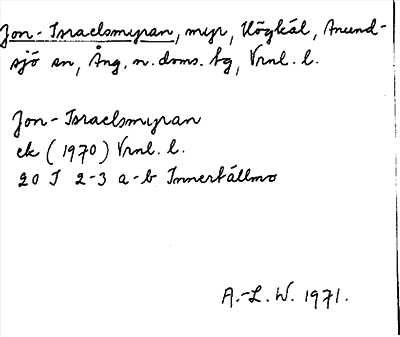 Jon-Israelsmyran, myr, Högkål, Anund-
sjö sn, Ång. n. doms. bg, Vrnl. l.
Jon-Israelsmyran
ek (1970) Vrnl. l.
20 J 2-3 a-b Innertällmo
A.-L. W. 1971.